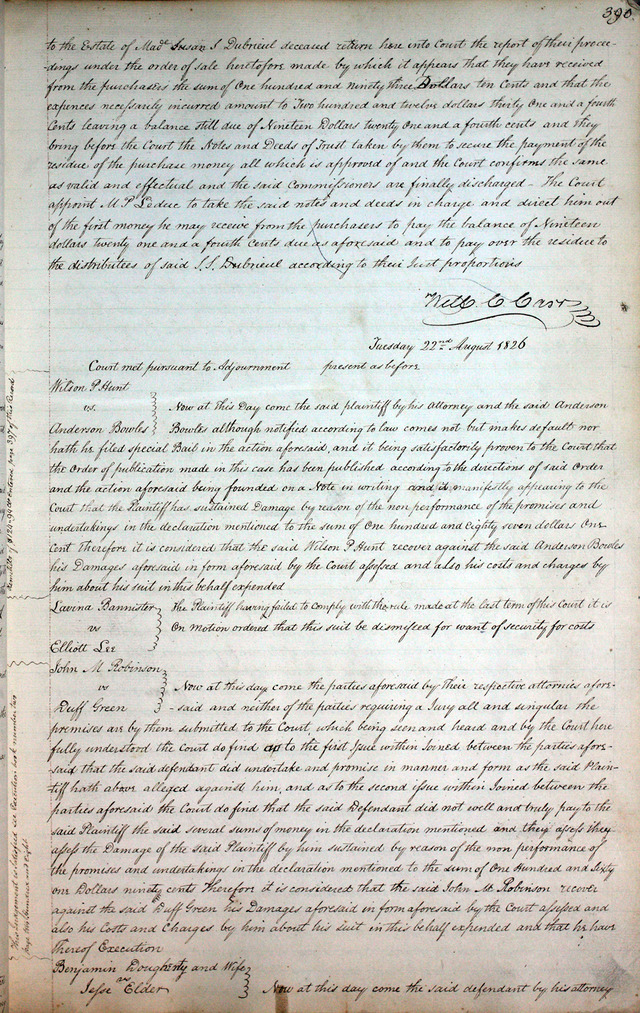 390.
to the Estate of Mad.e Susan S Dubrieul deceased return here into Court the report of their procee-
dings under the order of sale heretofore made by which it appears that they have received
from the purchasers the sum of One hundred and ninety three Dollars ten Cents and that the
expences necessarily incurred amount to Two hundred and twelve dollars thirty One and a fourth
Cents leaving a balance still due of Nineteen Dollars twenty one and a fourth cents and they
bring before the Court the Notes and Deeds of Trust taken by them to secure the payment of the
residue of the purchase money all which is approved of and the Court confirms the same
as valid and effectual and the said Commissoners are finally discharged - The Court
appoint M. P. Leduc to take the said notes and deeds in charge and direct him out
of the first money he may receive from the purchasers to pay the balance of Nineteen
dollars twenty one and a fourth Cents due as aforesaid and to pay over the residue to
the distributees of said S. S. Dubrieul according to their Just proportions
Will. C Carr
Tuesday 22nd August 1826
Court met pursuant to Adjournment present as before
Wilson P. Hunt
vs.
Anderson Bowles
Now at this Day come the said plaintiff by his Attorney and the said Anderson
Bowles although notified according to law comes not but makes default nor
hath he filed special Bail in the action aforesaid, and it being satisfactorily proven to the Court that
the Order of publication made in this case has been published according to the directions of said Order
and the action aforesaid being founded on a Note in writing and it manifestly appearing to the
Court that the Plaintiff has sustained Damage by reason of the non performance of the promises and
undertakings in the declaration mentioned to the sum of One hundred and Eighty seven dollars One
Cent Therefore it is considered that the said Wilson P. Hunt recover against the said Anderson Bowles
his Damages aforesaid in form aforesaid by the Court assessed and also his costs and charges by
him about his suit in this behalf expended
Lavina Bannister
vs
Elliott Lee
The Plaintiff having failed to comply with the rule made at the last term of this Court it is
On motion ordered that this suit be dismissed for want of security for costs
John M Robinson
vs
Duff Green
Now at this day come the parties aforesaid by their respective attornies afore-
- said and neither of the parties requiring a Jury all and singular the
premises are by them submitted to the Court, which being seen and heard and by the Court here
fully understood the Court do find as to the first Issue within Joined between the parties afore-
said that the said defendant did undertake and promise in manner and form as the said Plain-
tiff hath above alleged against him, and as to the second issue within Joined between the
parties aforesaid the Court do find that the said Defendant did not well and truly pay to the
said Plaintiff the said several sums of money in the declaration mentioned and they assess they
assess the Damage of the said Plaintiff by him sustained by reason of the non performance of
the promises and undertakings in the declaration mentioned to the sum of One Hundred and Sixty
one Dollars ninety cents Therefore it is considered that the said John M. Robinson recover
against the said Duff Green his Damages aforesaid in form aforesaid by the Court assessed and
also his Costs and Charges by him about his suit in this behalf expended and that he have
thereof Execution
Benjamin Dougherty and Wife
vs
Jesse Elder
Now at this day come the said defendant by his attorney
Remittitur of $124.99 entered page 397 of this Record
This Judgement is satisfied see Execution book number two
page two hundred and eight